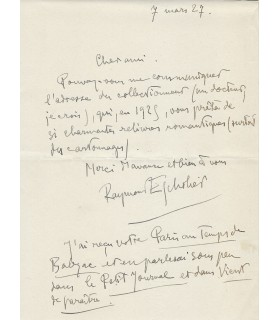 7 mars 27.
Cher ami.
Pouvez-vous me communiquer
l'adresse du collectionneur (un docteur
je crois), qui, en 1925, vous prêta de
si charmantes reliures romantiques (surtout
des cartonnages).
Merci d'avance et bien à vous
Raymond Escholier
J'ai reçu votre Paris au temps de
Balzac et en parlerai sous peu
dans le Petit Journal et dans Vient
de paraître.